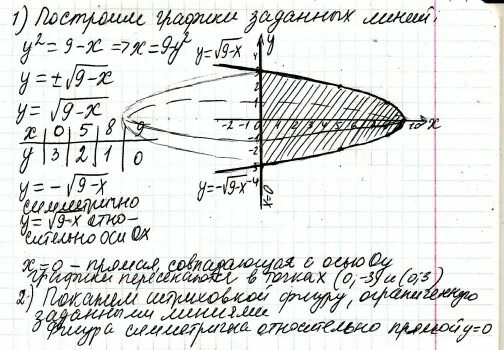 1) Построим графики заданных линий.
y² = 9-x => x = 9-y²
y = ±√9-x
y = √9-x
x | 0 | 5 | 8 | 9
y | 3 | 2 | 1 | 0
y = -√9-x
симметрично
y = √9-x отно-
сительно оси Ox
y = √9-x
y
-2 -1 0 1 2 3 4 5 6 7 8 9 10 x
y = -√9-x
x=0
x = 0 - прямая, совпадающая с осью Oy
Графики пересекаются в точках (0;-3) и (0;3)
2) Покажем штриховкой фигуру, ограниченную
заданными линиями
Фигура симметрична относительно прямой y = 0